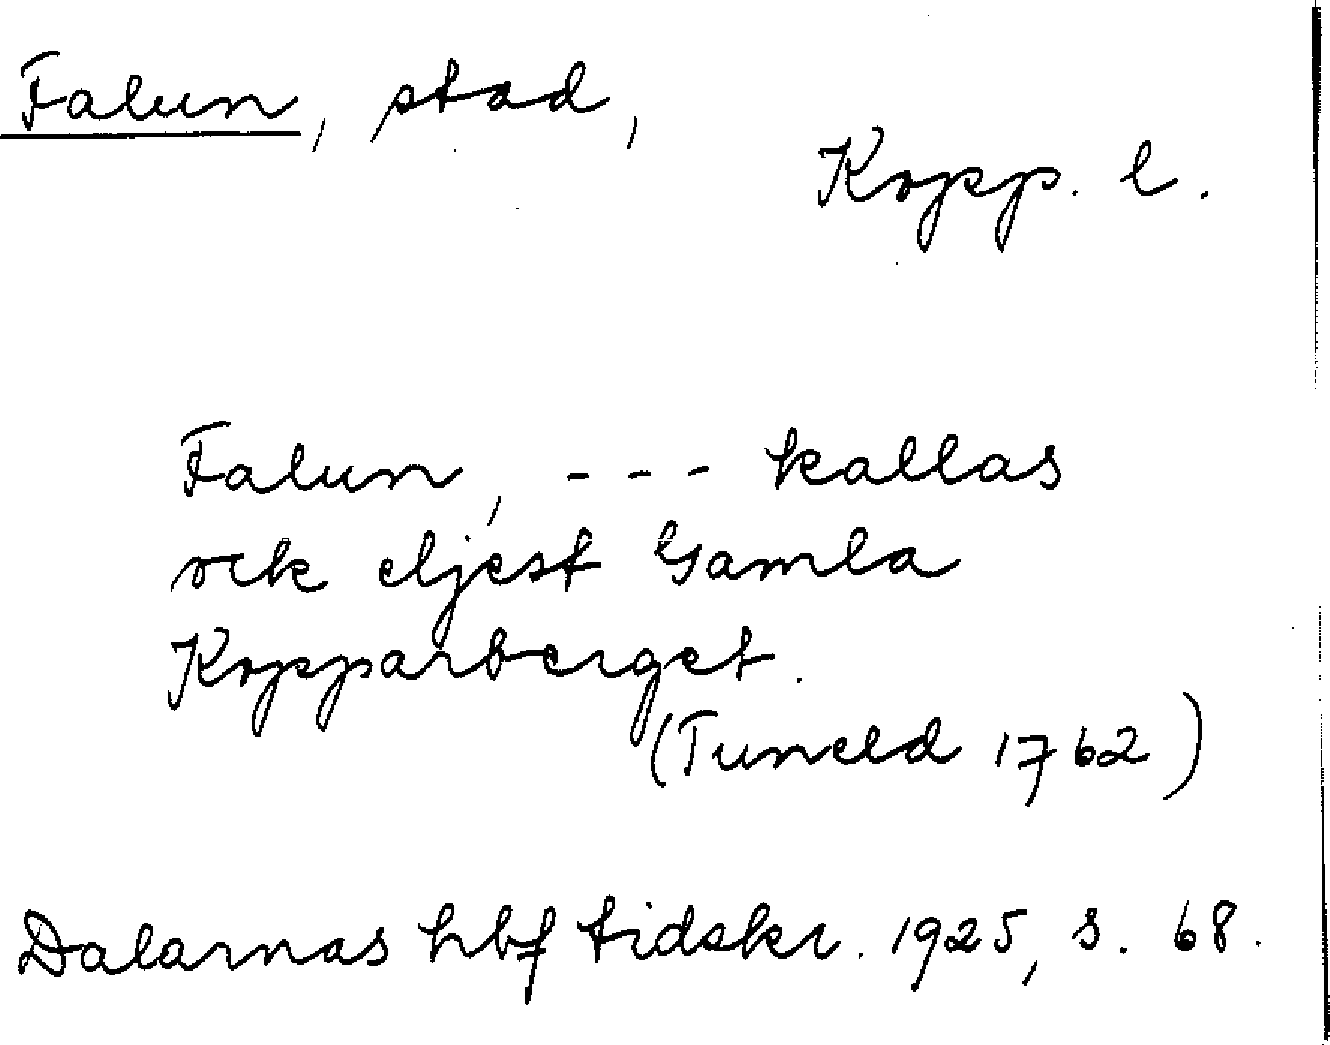 Falun, stad,
Kopp. l.
Falun, - - - kallas
ock eljest Gamla
Kopparberget.
(Tuneld 1762)
Dalarnas hbf tidskr. 1925, s. 68.